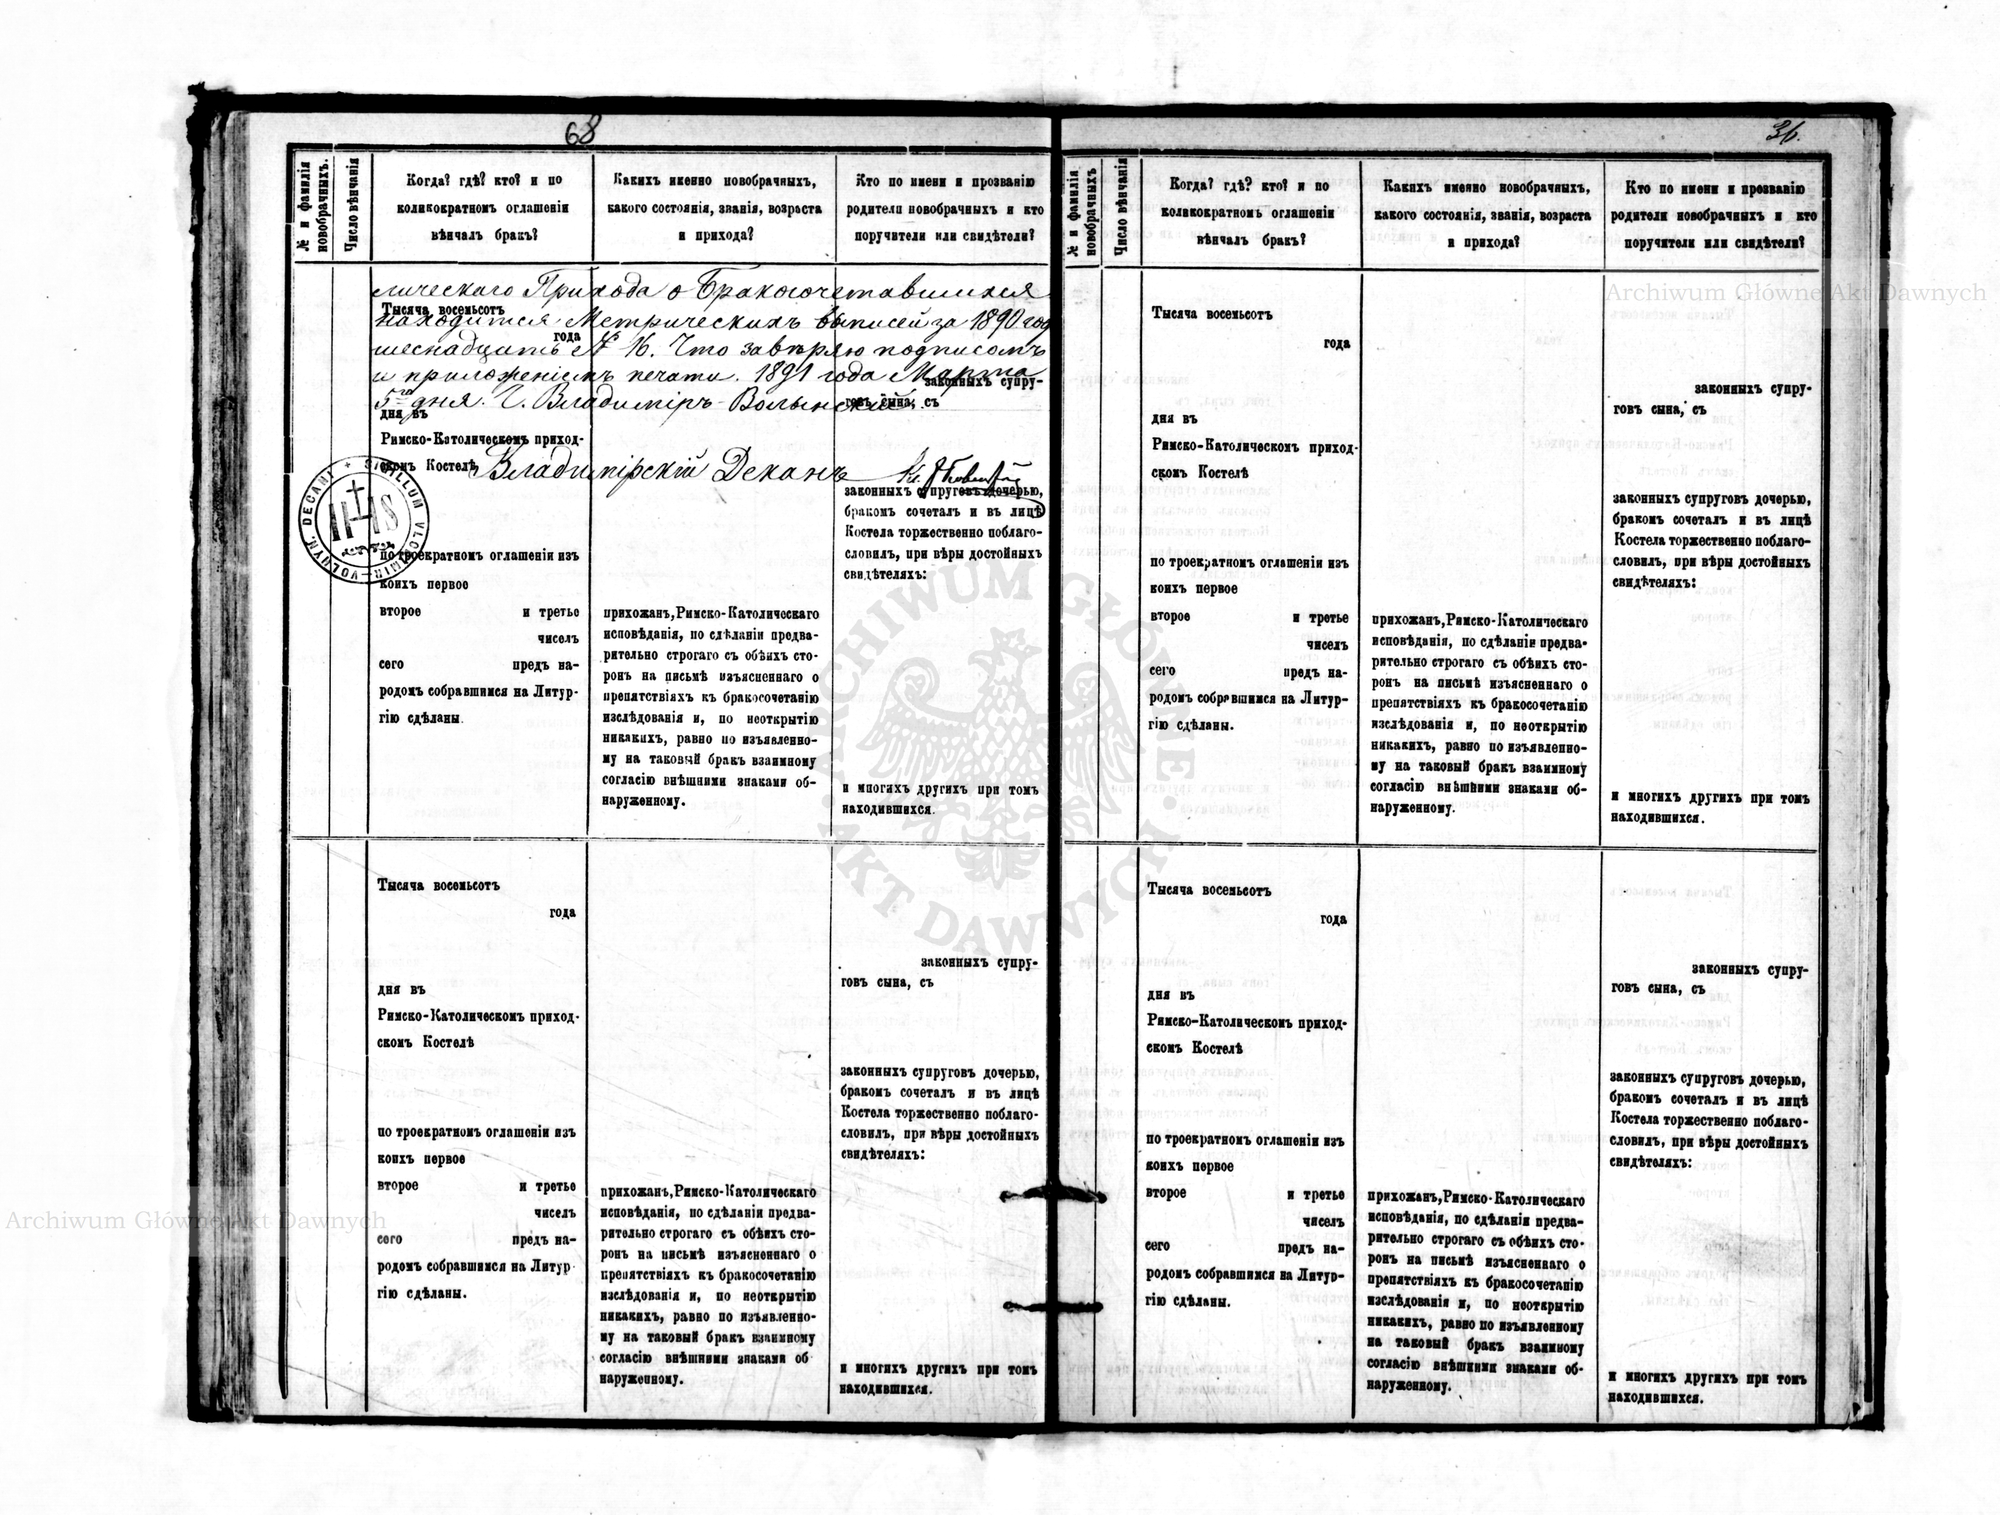 68
№ и фамилія новобрачныхъ.
Число вѣнчанія
Когда? гдѣ? кто? и по
коликократномъ оглашеніи
вѣнчалъ бракъ?
Какихъ именно новобрачныхъ,
какого состоянія, званія, возраста
и прихода?
Кто по имени и прозванію
родители новобрачныхъ и кто
поручители или свидѣтели?
лическаго Прихода о Бракосочетавшихся
находится Метрическихъ выписей за 1890 год
шеснадцать № 16. Что завѣряю подписомъ
и приложеніемъ печати. 1891 года Марта
5го дня. Г. Владиміръ-Волынскій.
Владимірскій Деканъ
Тысяча восемьсотъ
года
дня въ
Римско-Католическомъ приход-
скомъ Костелѣ
SIGILLUM VLODIMIR-VOLHYN. DECANI
IHS
по троекратномъ оглашеніи изъ
коихъ первое
второе и третье
чиселъ
сего предъ на-
родомъ собравшимся на Литур-
гію сдѣланы.
прихожанъ, Римско-Католическаго
исповѣданія, по сдѣланіи предва-
рительно строгаго съ обѣихъ сто-
ронъ на письмѣ изъясненнаго о
препятствіяхъ къ бракосочетанію
изслѣдованія и, по неоткрытію
никакихъ, равно по изъявленно-
му на таковый бракъ взаимному
согласію внѣшними знаками об-
наруженному.
законныхъ супру-
говъ сына, съ
законныхъ супруговъ дочерью,
бракомъ сочеталъ и въ лицѣ
Костела торжественно поблаго-
словилъ, при вѣры достойныхъ
свидѣтеляхъ:
и многихъ другихъ при томъ
находившихся.
Тысяча восемьсотъ
года
дня въ
Римско-Католическомъ приход-
скомъ Костелѣ
по троекратномъ оглашеніи изъ
коихъ первое
второе и третье
чиселъ
сего предъ на-
родомъ собравшимся на Литур
гію сдѣланы.
прихожанъ, Римско-Католическаго
исповѣданія, по сдѣланіи предва-
рительно строгаго съ обѣихъ сто-
ронъ на письмѣ изъясненнаго о
препятствіяхъ къ бракосочетанію
изслѣдованія и, по неоткрытію
никакихъ, равно по изъявленно-
му на таковый бракъ взаимному
согласію внѣшними знаками об
наруженному.
законныхъ супру-
говъ сына, съ
законныхъ супруговъ дочерью,
бракомъ сочеталъ и въ лицѣ
Костела торжественно поблаго-
словилъ, при вѣры достойныхъ
свидѣтеляхъ:
и многихъ другихъ при томъ
находившихся.
36.
№ и фамилія новобрачныхъ
Число вѣнчанія
Когда? гдѣ? кто? и по
коликократномъ оглашеніи
вѣнчалъ бракъ?
Какихъ именно новобрачныхъ,
какого состоянія, званія, возраста
и прихода?
Кто по имени и прозванію
родители новобрачныхъ и кто
поручители или свидѣтели?
Тысяча восемьсотъ
года
дня въ
Римско-Католическомъ приход-
скомъ Костелѣ
по троекратномъ оглашеніи изъ
коихъ первое
второе и третье
чиселъ
сего предъ на-
родомъ собравшимся на Литур-
гію сдѣланы.
прихожанъ, Римско-Католическаго
исповѣданія, по сдѣланіи предва-
рительно строгаго съ обѣихъ сто-
ронъ на письмѣ изъясненнаго о
препятствіяхъ къ бракосочетанію
изслѣдованія и, по неоткрытію
никакихъ, равно по изъявленно-
му на таковый бракъ взаимному
согласію внѣшними знаками об-
наруженному.
законныхъ супру-
говъ сына, съ
законныхъ супруговъ дочерью,
бракомъ сочеталъ и въ лицѣ
Костела торжественно поблаго-
словилъ, при вѣры достойныхъ
свидѣтеляхъ:
и многихъ другихъ при томъ
находившихся.
Тысяча восемьсотъ
года
дня въ
Римско-Католическомъ приход-
скомъ Костелѣ
по троекратномъ оглашеніи изъ
коихъ первое
второе и третье
чиселъ
сего предъ на-
родомъ собравшимся на Литур-
гію сдѣланы.
прихожанъ, Римско-Католическаго
исповѣданія, по сдѣланіи предва-
рительно строгаго съ обѣихъ сто-
ронъ на письмѣ изъясненнаго о
препятствіяхъ къ бракосочетанію
изслѣдованія и, по неоткрытію
никакихъ, равно по изъявленному
на таковый бракъ взаимному
согласію внѣшними знаками об-
наруженному.
законныхъ супру-
говъ сына, съ
законныхъ супруговъ дочерью,
бракомъ сочеталъ и въ лицѣ
Костела торжественно поблаго-
словилъ, при вѣры достойныхъ
свидѣтеляхъ:
и многихъ другихъ при томъ
находившихся.
Archiwum Główne Akt Dawnych
ARCHIWUM GŁÓWNE
AKT DAWNYCH
Archiwum Główne Akt Dawnych